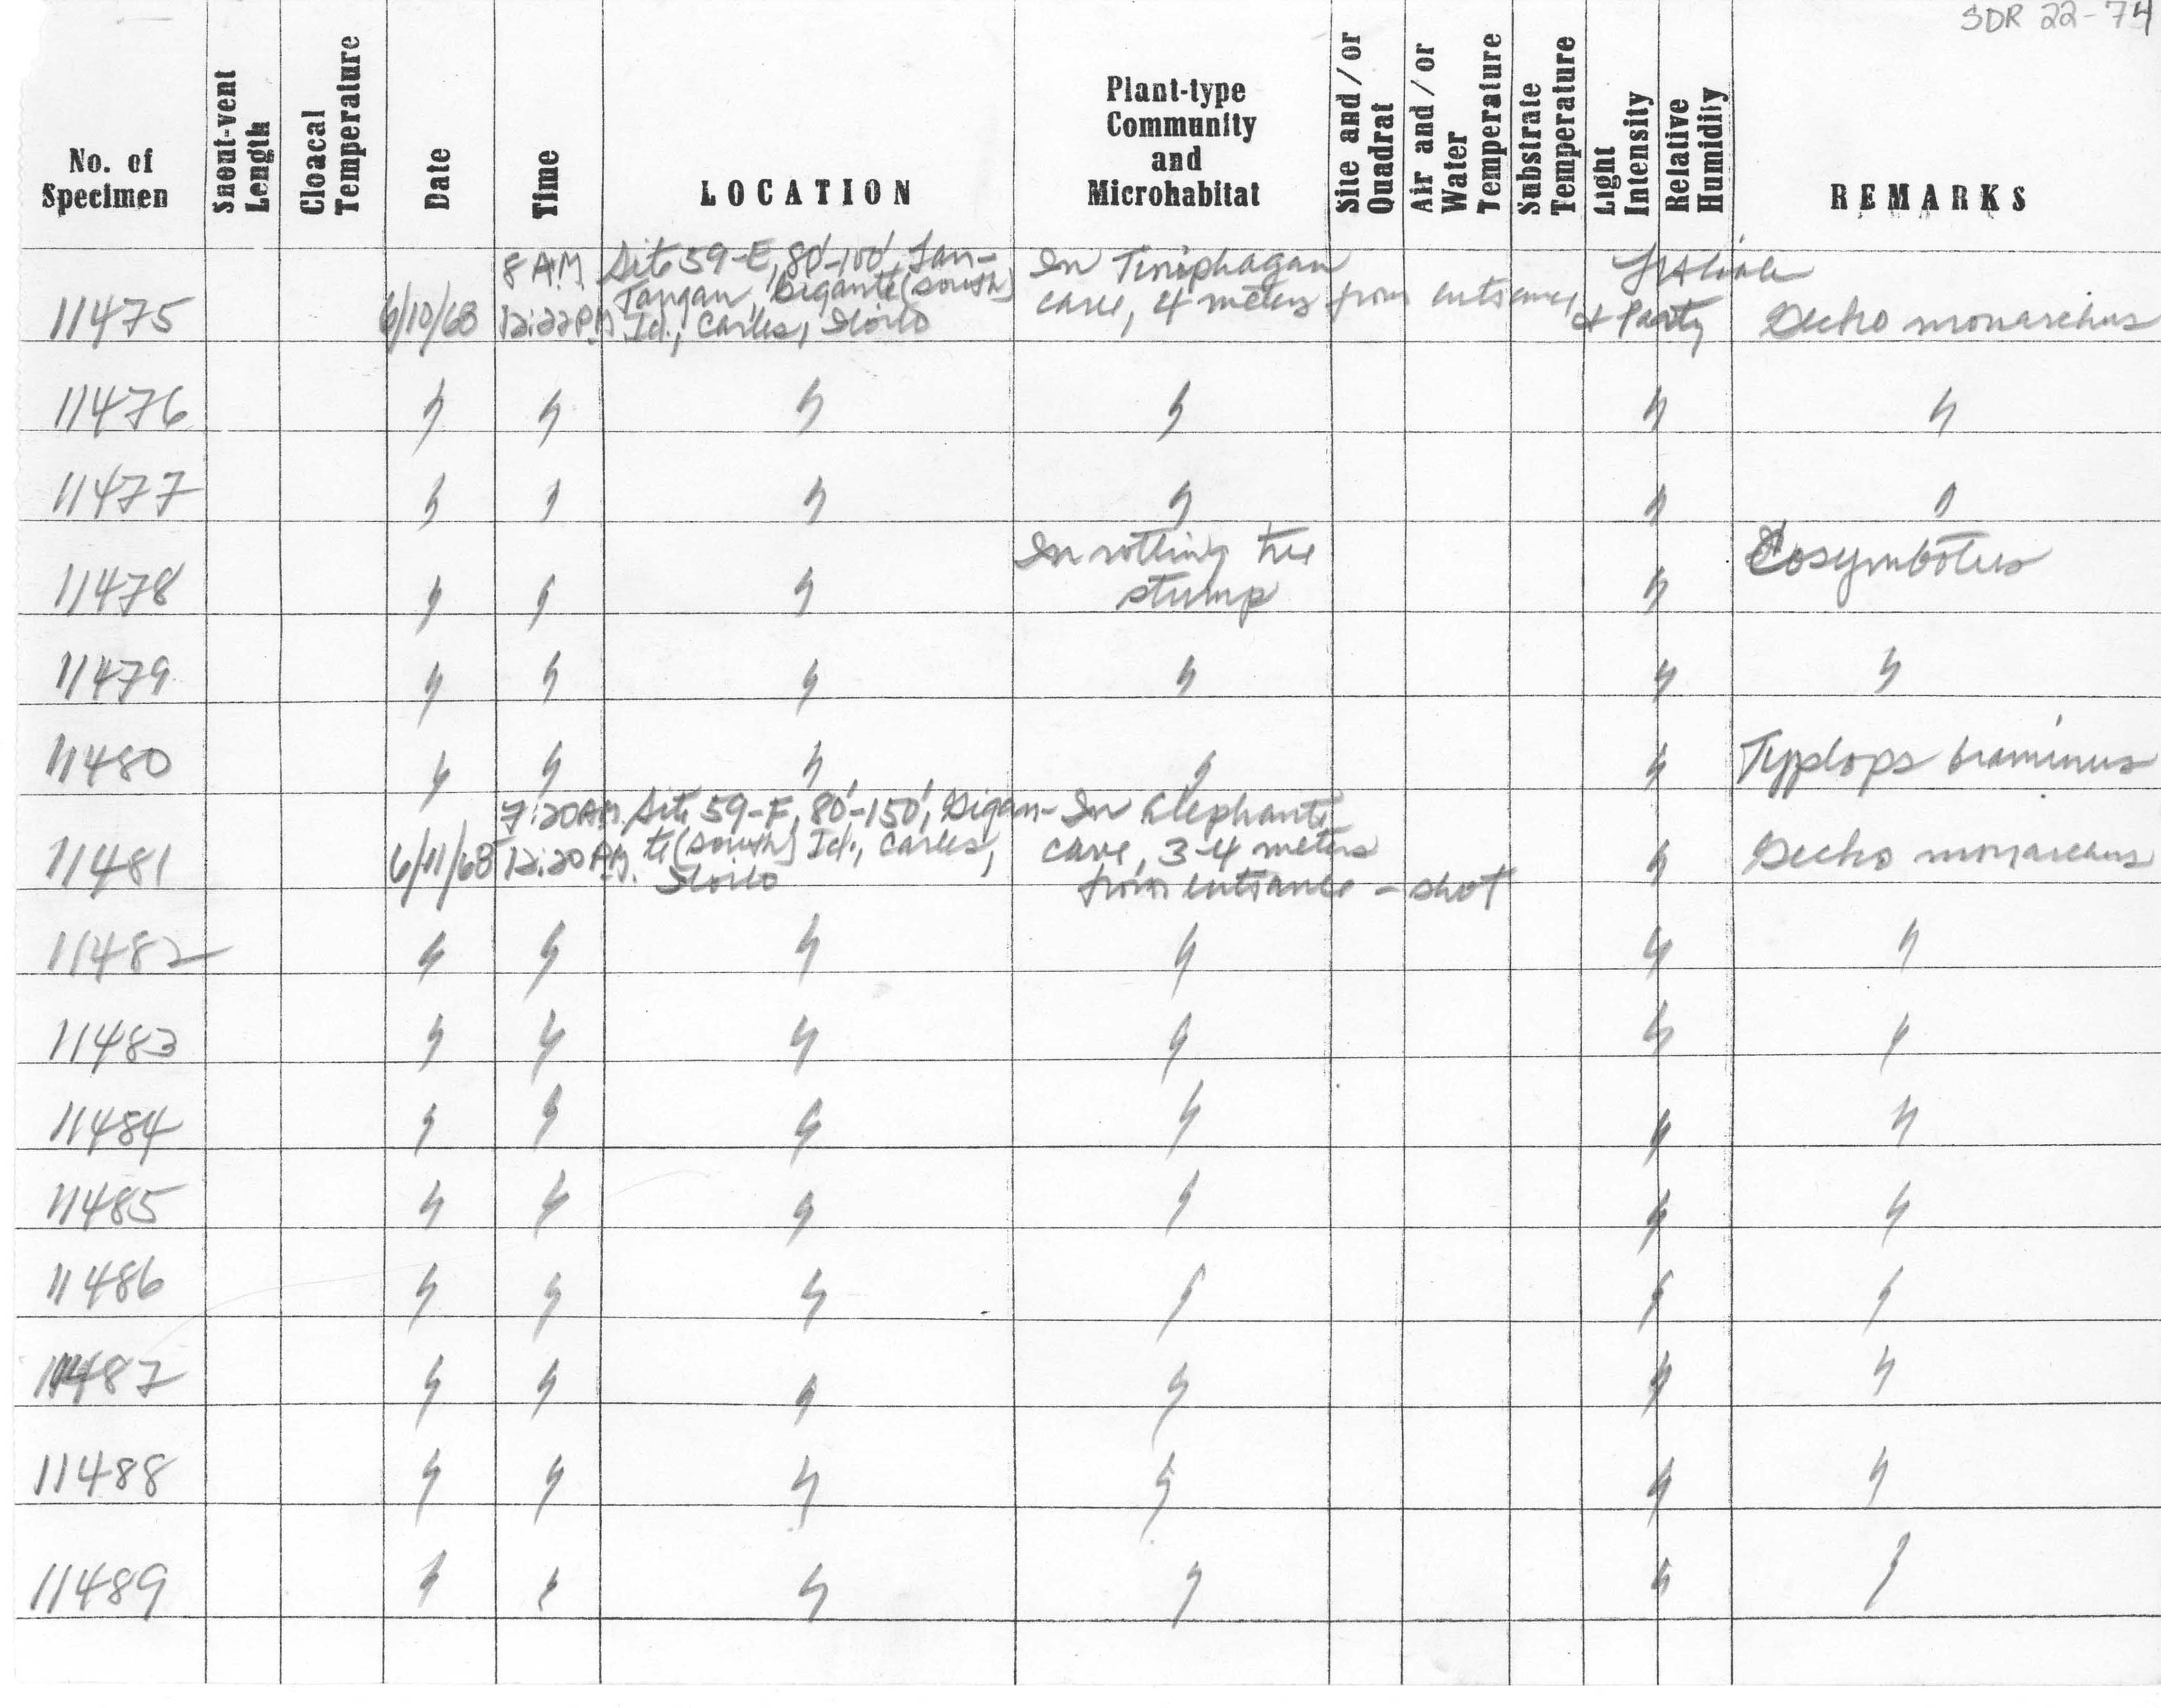 SDR 22-74
No. of Specimen | Snout-vent Length | Cloacal Temperature | Date | Time | LOCATION | Plant-type Community and Microhabitat | Site and/or Quadrat | Air and/or Water Temperature | Substrate Temperature | Light Intensity | Relative Humidity | REMARKS
11475 | 6/10/68 | 8 AM 12:22 PM | Site 59-E, 80'-100', Tan-Tangan, Gigante (South) Id., Carles, Iloilo | In Tiniphagan cave, 4 meters from entrance | & Party | Gecko monarchus
11476 | " | " | " | " | " | "
11477 | " | " | " | " | " | "
11478 | " | " | " | In rotting tree stump | " | Cosymbotus
11479 | " | " | " | " | " | "
11480 | " | " | " | " | " | Typlops braminus
11481 | 6/11/68 | 7:20 AM. 12:20 AM. | Site 59-F, 80'-150', Gigan-te (South) Id., Carles, Iloilo | In Elephante cave, 3-4 meters from entrance - shot | " | Gecko monarchus
11482 | " | " | " | " | " | "
11483 | " | " | " | " | " | "
11484 | " | " | " | " | " | "
11485 | " | " | " | " | " | "
11486 | " | " | " | " | " | "
11487 | " | " | " | " | " | "
11488 | " | " | " | " | " | "
11489 | " | " | " | " | " | "